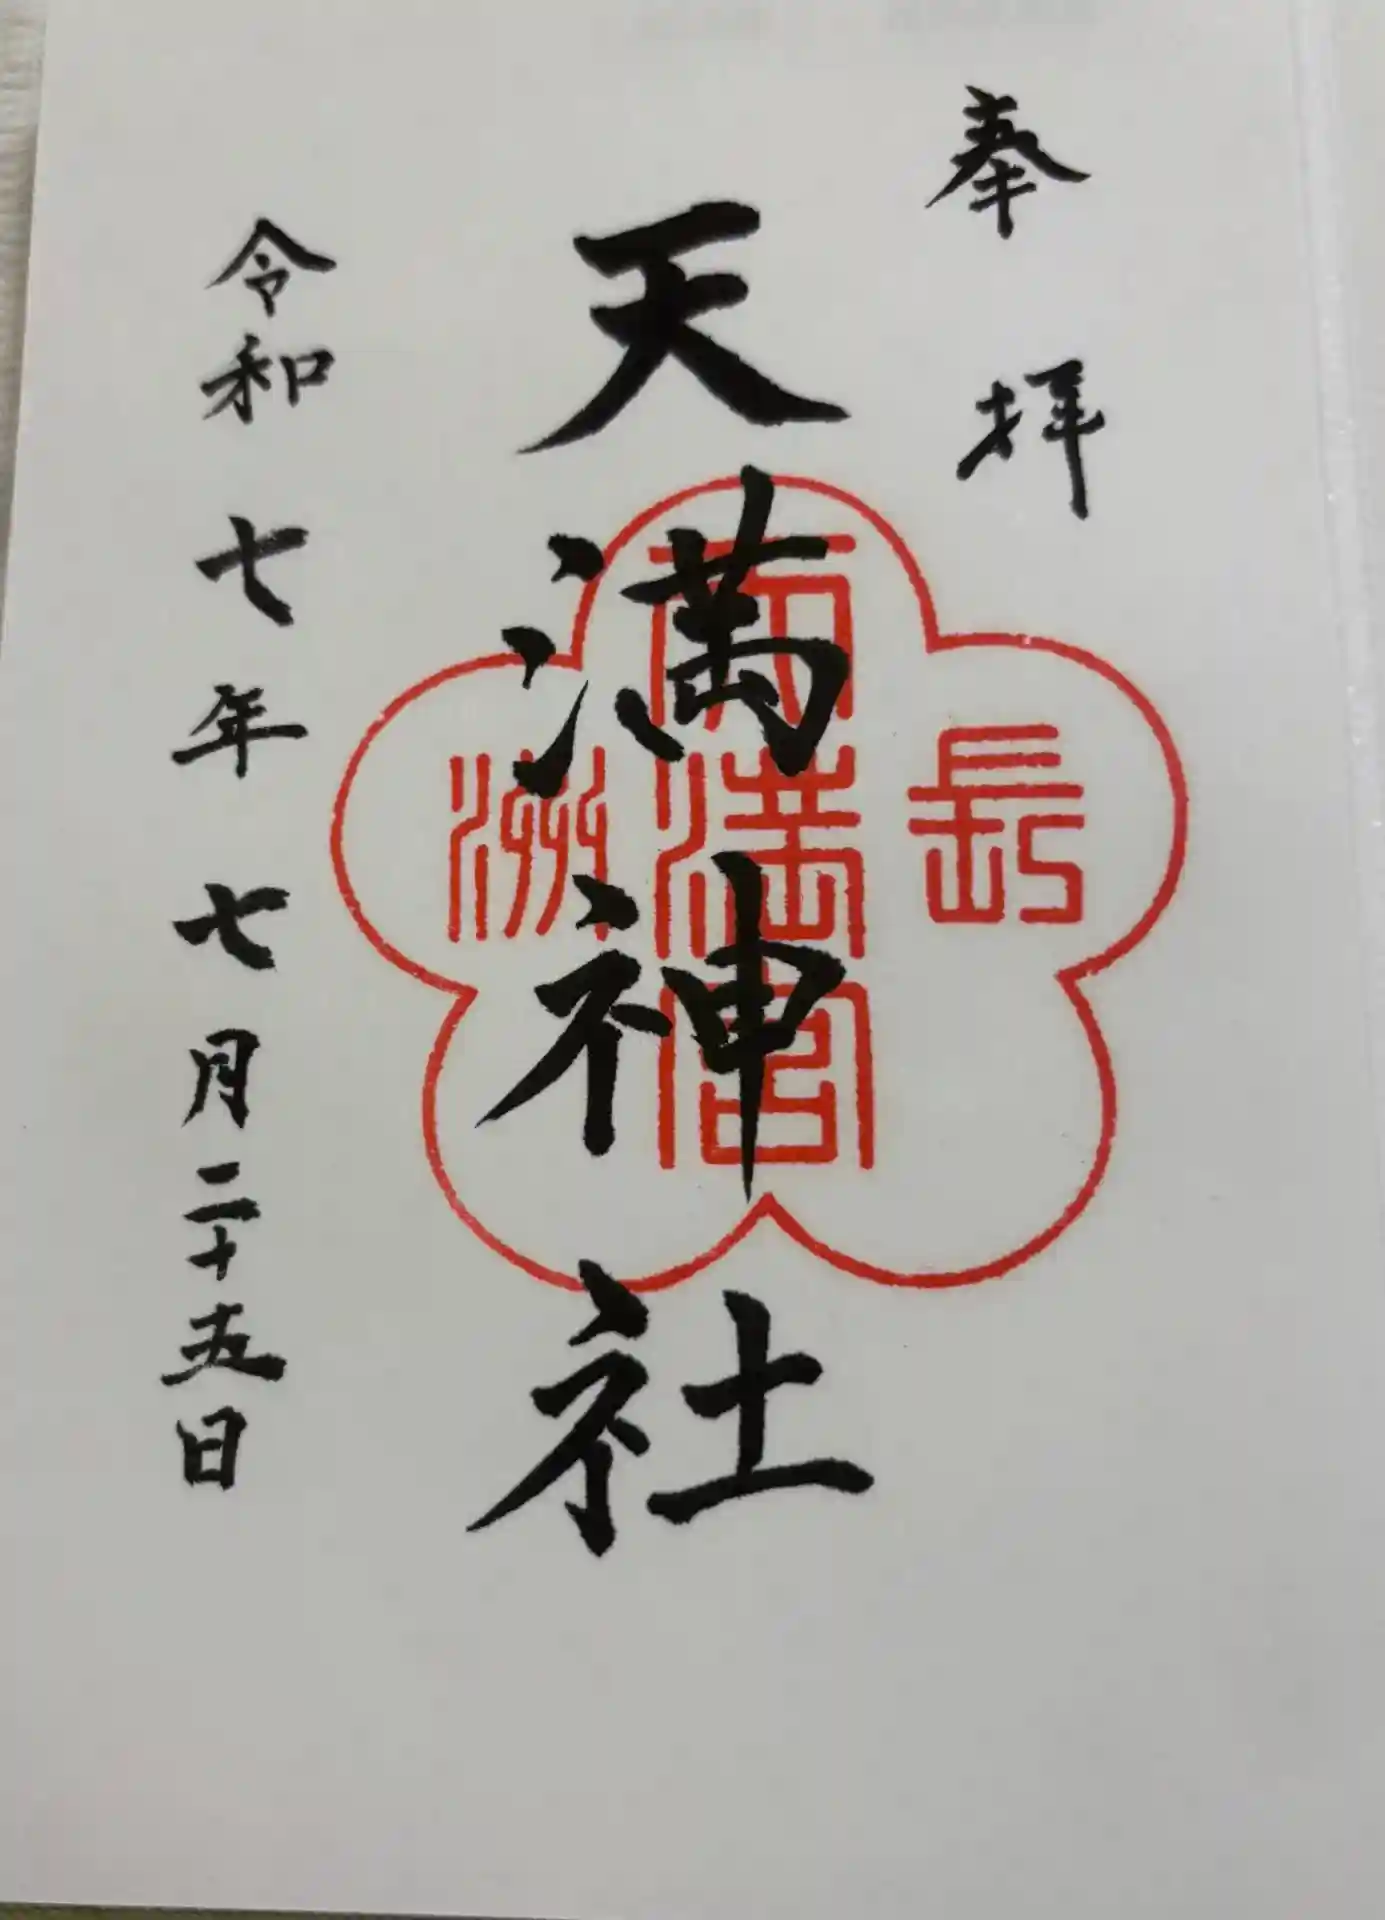 奉拝
天満神社
長
天満宮
洲
令和七年七月二十五日